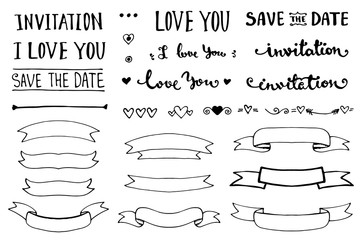 INVITATION
I LOVE YOU
SAVE THE DATE
LOVE YOU
I love You
Love You
SAVE THE DATE
invitation
invitation